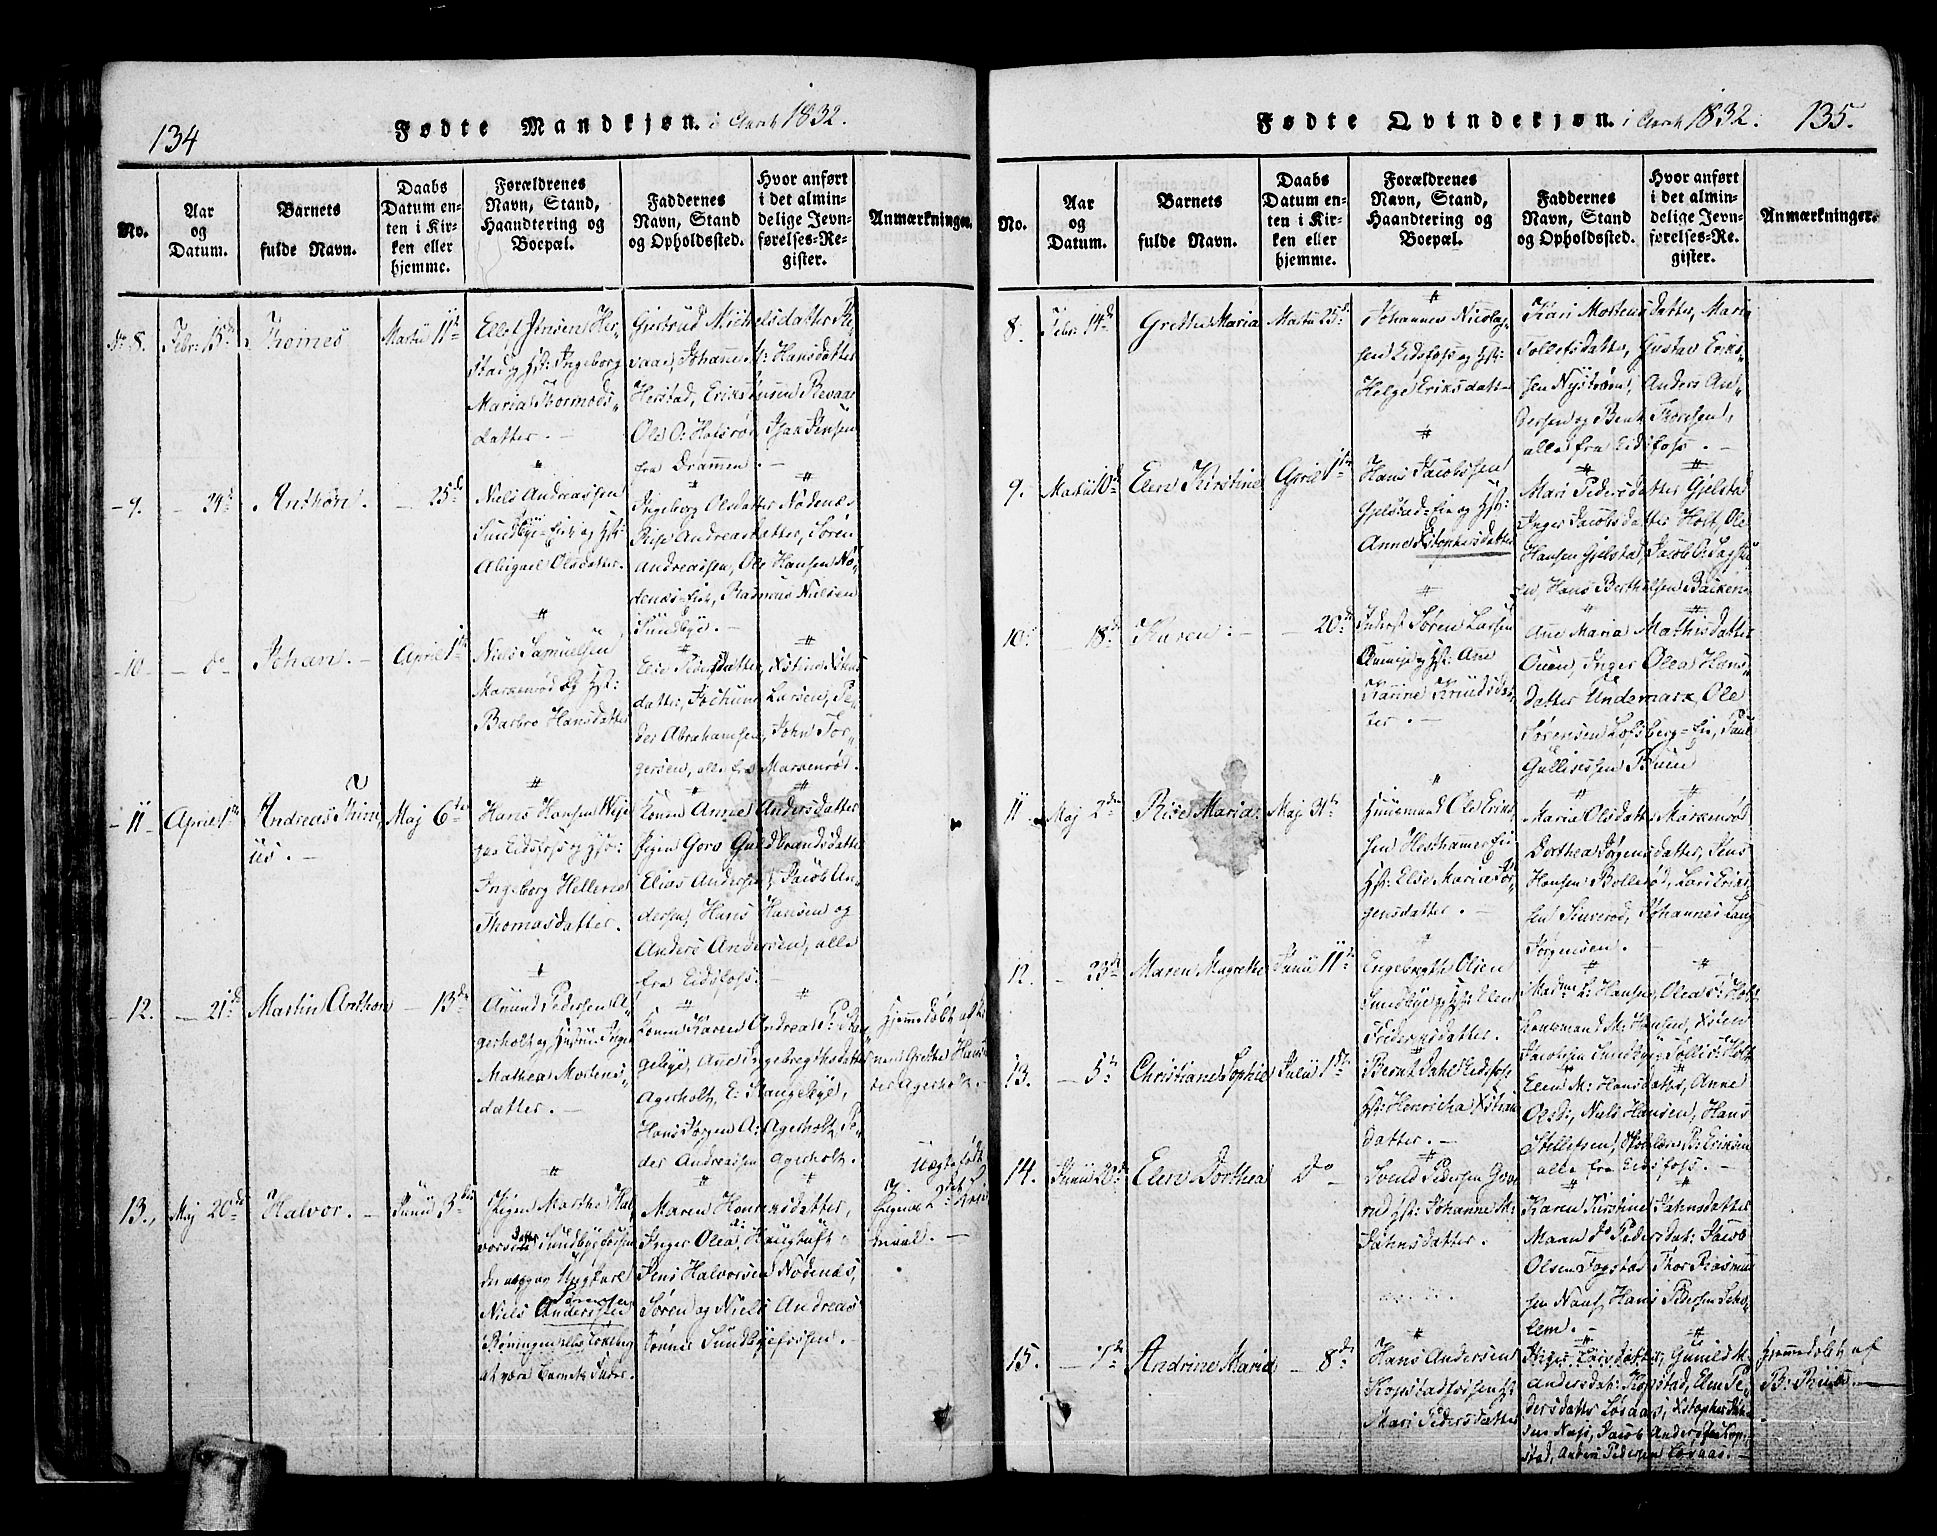 134
Fødte Mandkjøn. i Aaret 1832.
No.
Aar
og
Datum.
Barnets
fulde Navn.
Daabs
Datum en-
ten i Kir-
ken eller
hjemme.
Forældrenes
Navn, Stand,
Haandtering og
Boepæl.
Faddernes
Navn, Stand
og Opholdssted.
Hvor anført
i det almin-
delige Jevn-
førelses-Re-
gister.
Anmærkninger.
No 8. Febr: 15de
Thomes
Martii 11te
Ellef Jensen Her-
stad og Hst: Ingeborg
Maria Thormods-
datter. —
Gjertrud Michelsdatter Re-
vaae, Johanne M: Hansdatter
Herstad, Erik Jensen Revaae
Ole O: Holsrød Isaa Jensen
fra Drammen. —
- 9. — 24de
Anthon.
— 25de
Niels Andreassen
Sundbye-Eie og Hst:
Abigael Olsdatter.
Ingeborg Olsdatter Nødenes
Rise Andreasdatter, Søren
Andreassen, Ole Hansen Nø-
denes-Eie, Rasmus Nielsen
Sundbye. —
- 10 — do
Johan. —
April 1ste
Niels Samuelsen
Markerød og Hst:
Barbro Hansdatter
Else Pedersdatter, Kistine Xstens
datter, Jochum Larsen, Pe-
der Abrahamsen, John Tor-
gersen, alle fra Markerød.
- 11 - April 1ste
Andreas Thine
us. —
Maj 6te
Hans Hansen Weje
Eidsfos og Hst:
Ingeborg Hellene
Thomasdatter.
Konen Anne Andersdatter
Pigen Goro Guldbrandsdatter
Elias Andersen, Jacob An-
dersen, Hans Hansen og
Anders Andersen, alle
fra Eidsfos. —
- 12. — 21de
Martin Anthon
— 13de
Amund Pedersen A-
gerholt og Hustru Inger
Mathea Mortens-
datter. —
Konen Karen Andrea P: Stan
gebye, Ane Ingebregthsdatter
Agerholt, E: Stangebye,
Hans Jørgen A: Agerholt, Pe-
der Andreassen Agerholt.
Hjemmedøbt af Ko
nen Grethe Hans
der Agerholt. —
13., Maj 20de
Halvor. —
Junii 3die
Pigen Marthe Hal
vorsdatter Sundbyefossen
der udgav Ungkarl
Niels Andersen
Sørensen
at være Barnets Fader.
Maren Henriksdatter,
Inger Olea, Haugtuft,
Jens Halvorsen Nødenes,
Søren og Niels Andreas
Sønner Sundbyefossen. —
Uægtefødt
Pigens 2det Leier
maal. —
Fødte Qvindekjøn. i Aaret 1832. 135.
No.
Aar
og
Datum.
Barnets
fulde Navn.
Daabs
Datum en-
ten i Kir-
ken eller
hjemme.
Forældrenes
Navn, Stand,
Haandtering og
Boepæl.
Faddernes
Navn, Stand
og Opholdssted.
Hvor anført
i det almin-
delige Jevn-
førelses-Re-
gister.
Anmærkninger.
8. Febr: 14de
Grethe Maria
Martii 25de
Johannes Nicolay-
sen Eidsfos og Hst:
Helge Eriksdatt-
Kari Mortensdatter, Maria
Tollefsdatter, Gustav Eriks-
sen Nystrøm, Anders An-
dersen og Bent Thoresen,
alle fra Eidsfoss. —
9. Martii 10de
Elen Kirstine
April 1ste
Hans Jacobsen
Gjelstadeie og Hst:
Anne Xstophersdatter
Mari Pedersdatter Gjelstad
Inger Jacobsdatter Holt, Ole
Hansen Gjelstad, Jacob O:
en, Hans Berthelsen Bakken
10. — 18de
Karen. —
— 20de
Inderst Søren Larsen
og Hst: Ane
Karine Knudsdat-
ter. —
Ane Maria Mathisdatter
Ouen, Inger Olea Hans-
datter Undemark, Ole
Sørensen Lofsberg-Eie, Paul
Gullikssen Buen
11 Maj 2den
Rise Maria.
Maj 31te
Huusmand Ole Erik-
sen Hesthammer Eie
Hst: Else Maria Jør-
gensdatter. —
Maria Olsdatter Markerød
Dorthea Jørgensdatter, Jens
Hansen Bollerød, Lars Erik-
sen Sinerød, Johannes Lang
Jørgensen.
12. — 23de
Maren Magrethe
Junii 11te
Engebregth Olsen
Sundbye og Hst: Elen
Fridericsdatter.
Madme L: Hansen, Olea S: Holt
Lensmand M: Hansen, Xsten
Jacobsen Sundbye, Tollef S: Holt
13. — 5te
Christiane Sophie
Julii 1ste
Bernt Dahl Eidsfos
Hst: Henricha Xstian
datter. —
Elen M: Hansdatter, Anne
Olsdr, Niels Hansen, Hans
Stillefsen, B: Eriksen
alle fra Eidsfoss. —
14. Junii 20de
Elen Dorthea
do —
Svend Pedersen
Hst: Johanne M:
Jahnsdatter. —
Karen Kirstine Jahnsdatter
Maren do Pedersdat: Jacob
Olsen Fogstad Thor Rasmus
sen Nauf, Hans Pedersen
lem. —
15. — 7de
Andrine Maria
— 8de
Hans Andersen
Kopstadfossen Hst
Mari Pedersdatter
Inger Larsdatter, Gunild M:
Andersdat: Kopstad, Elen Pe-
dersdatter Løsaas, Xstopher
Jacob Andersen Kop-
stad, Anders Pedersen Løsaas. —
Hjemmedøbt af
B: Riis. —